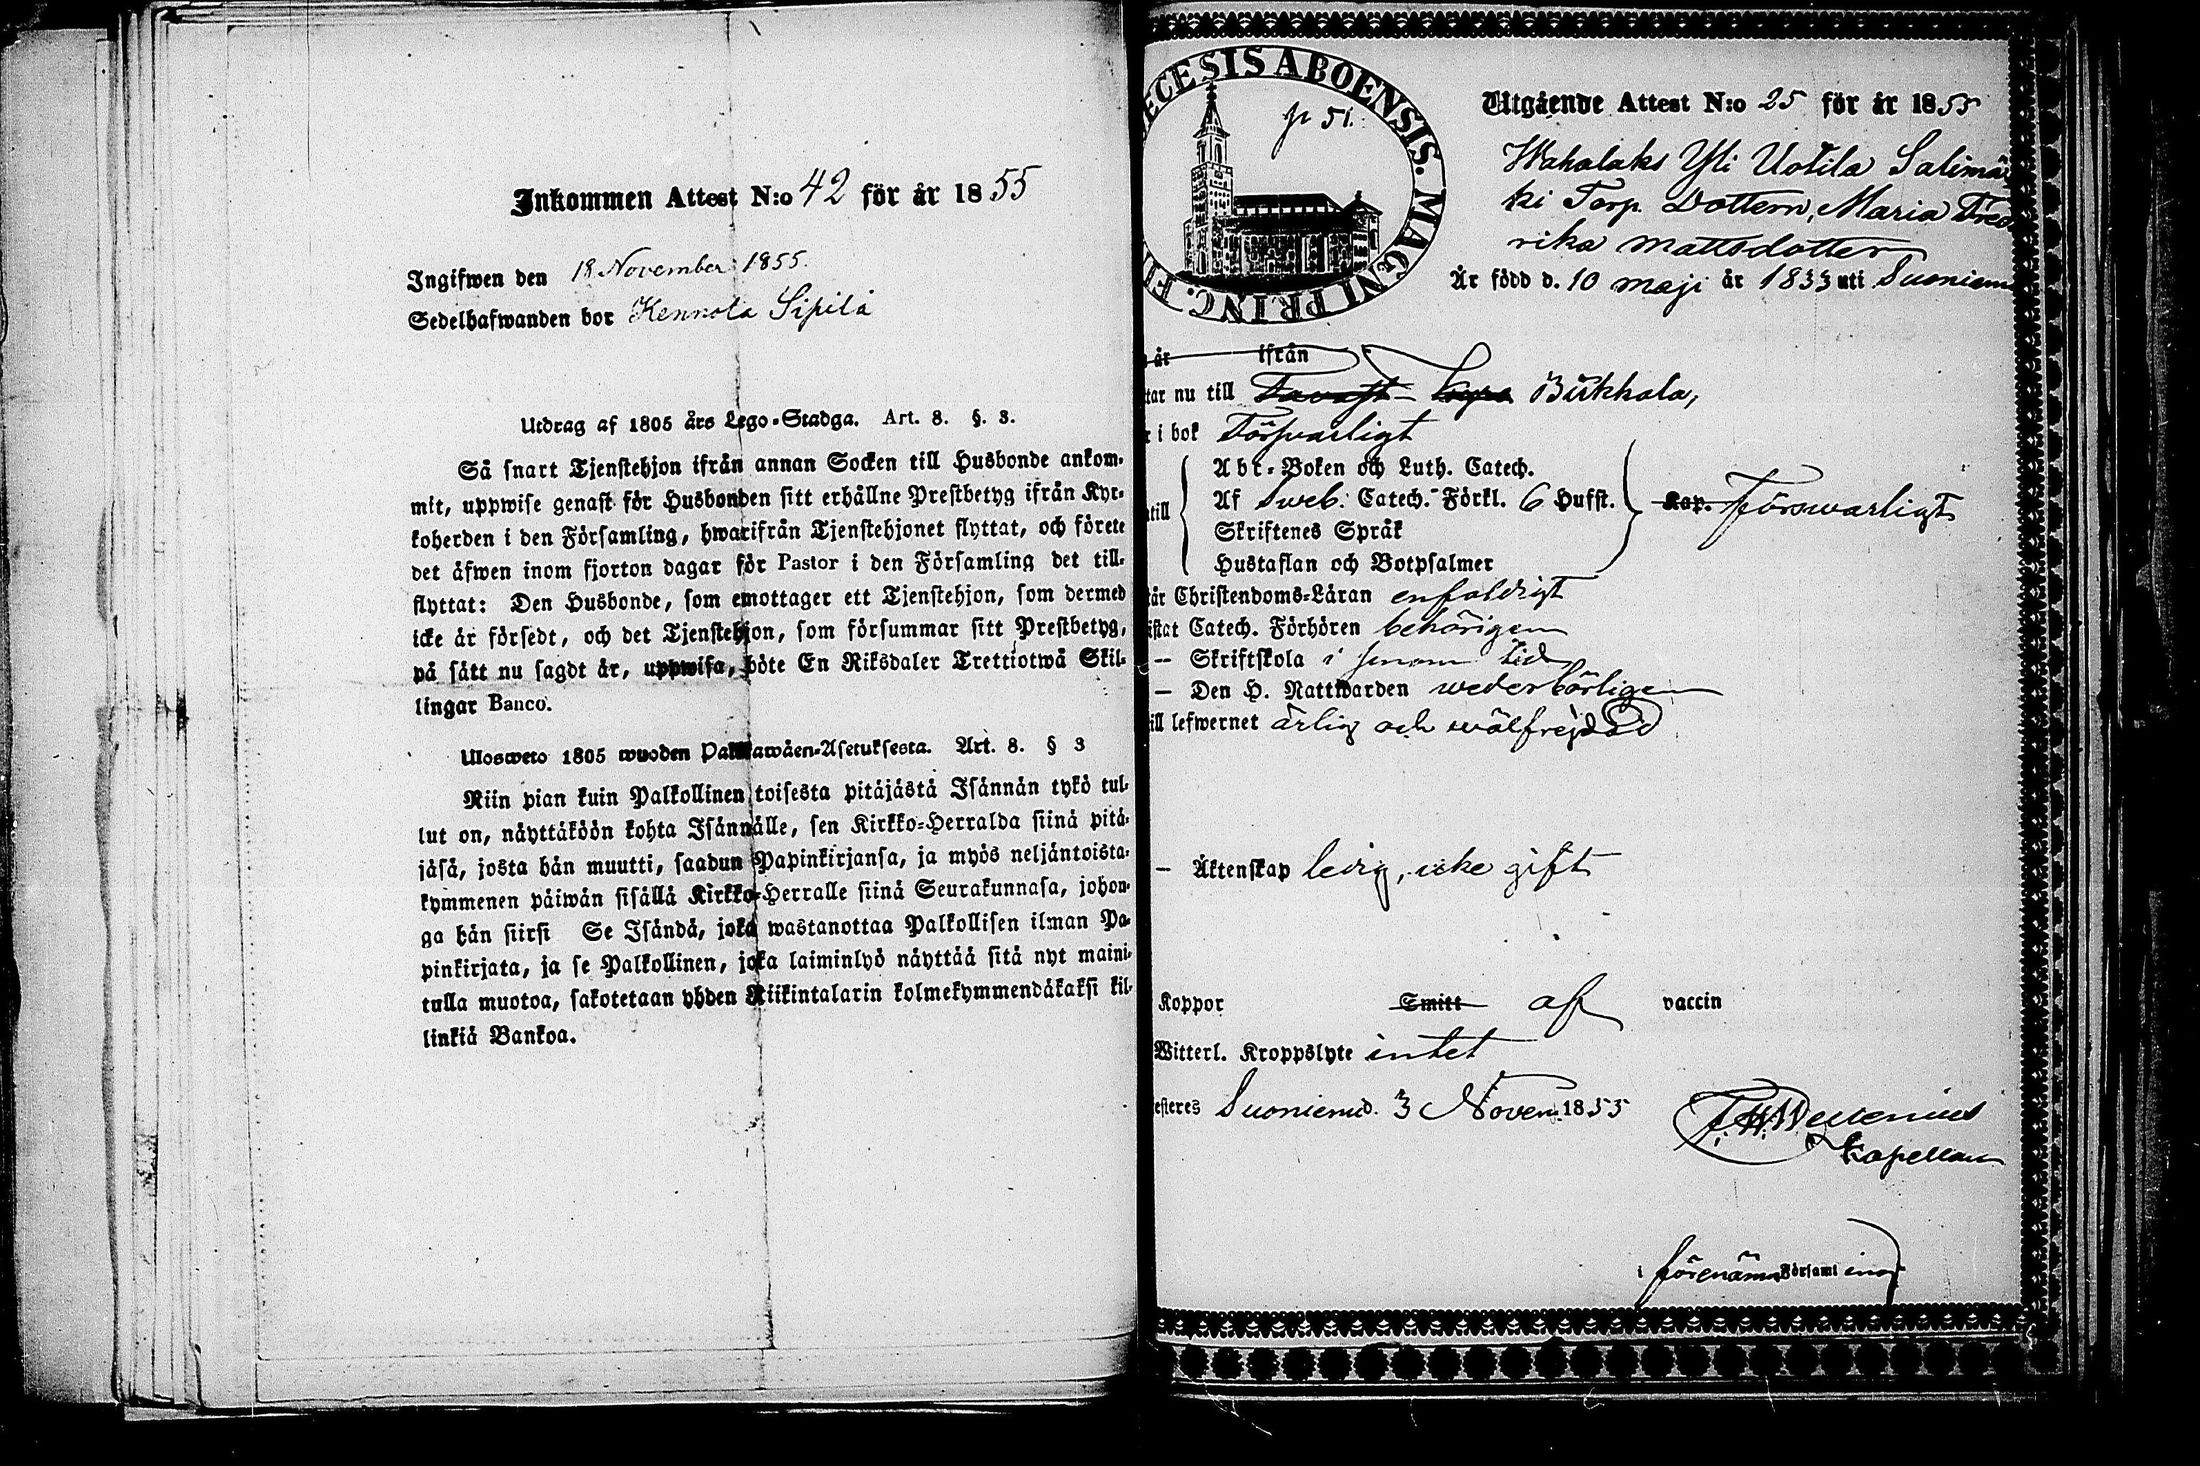 Inkommen Attest N:o 42 för år 1855
Ingifwen den 18 November 1855.
Sedelhafwanden bor Kennola Sipilä
Utdrag af 1805 års Lego-Stadga. Art. 8. §. 3.
Så snart Tjenstehjon ifrån annan Socken till Husbonde ankom-
mit, uppwise genast för Husbonden sitt erhållne Prestbetyg ifrån Kyr-
koherden i den Församling, hwarifrån Tjenstehjonet flyttat, och förete
det äfwen inom fjorton dagar för Pastor i den Församling det till-
flyttat: Den Husbonde, som emottager ett Tjenstehjon, som dermed
icke är försedt, och det Tjenstehjon, som försummar sitt Prestbetyg,
på sätt nu sagdt är, uppwisa, böte En Riksdaler Trettiotwå Skil-
lingar Banco.
Ulosweto 1805 wuoden Palkkawäen-Asetuksesta. Art. 8. § 3
Niin pian kuin Palkollinen toisesta pitäjästä Isännän tykö tul-
lut on, näyttäköön kohta Isännälle, sen Kirkko-Herralda siinä pitä-
jäsä, josta hän muutti, saadun Papinkirjansa, ja myös neljäntoista-
kymmenen päiwän sisällä Kirkko-Herralle siinä Seurakunnasa, johon-
ga hän siirsi Se Isändä, joka wastanottaa Palkollisen ilman Pa-
pinkirjata, ja se Palkollinen, joka laiminlyö näyttää sitä nyt maini-
tulla muotoa, sakotetaan yhden Riikintalarin kolmekymmendäkaksi kil-
linkiä Bankoa.
ECESIS ABOENSIS. MAGNI PRINC. FI
p 51.
Utgående Attest N:o 25 för år 1855
Wahalaks Yli Uotila Salimä
ki Torp. Dottern, Maria Fred
rika Mattsdotter
Är född d. 10 maji år 1833 uti Suoniem
år ifrån
tar nu till Tavast-Kyro Birkkala,
i bok Försvarligt
till Abc-Boken och Luth. Catech.
Af Sweb. Catech. Förkl. 6 Hufst. Kap. Förswarligt
Skriftenes Språk
Hustaflan och Botpsalmer
tår Christendoms-Läran enfaldigt
istat Catech. Förhören behörigen
— Skriftskola i sinom tid
— Den H. Nattwarden wederbörligen
ill lefwernet ärlig och wälfrejdad
— Äktenskap ledig, icke gift
Koppor Smitt af vaccin
Witterl. Kroppslyte intet
esteres Suoniemi d. 3 Novem. 1855
Kapellan
i förenämn Församling